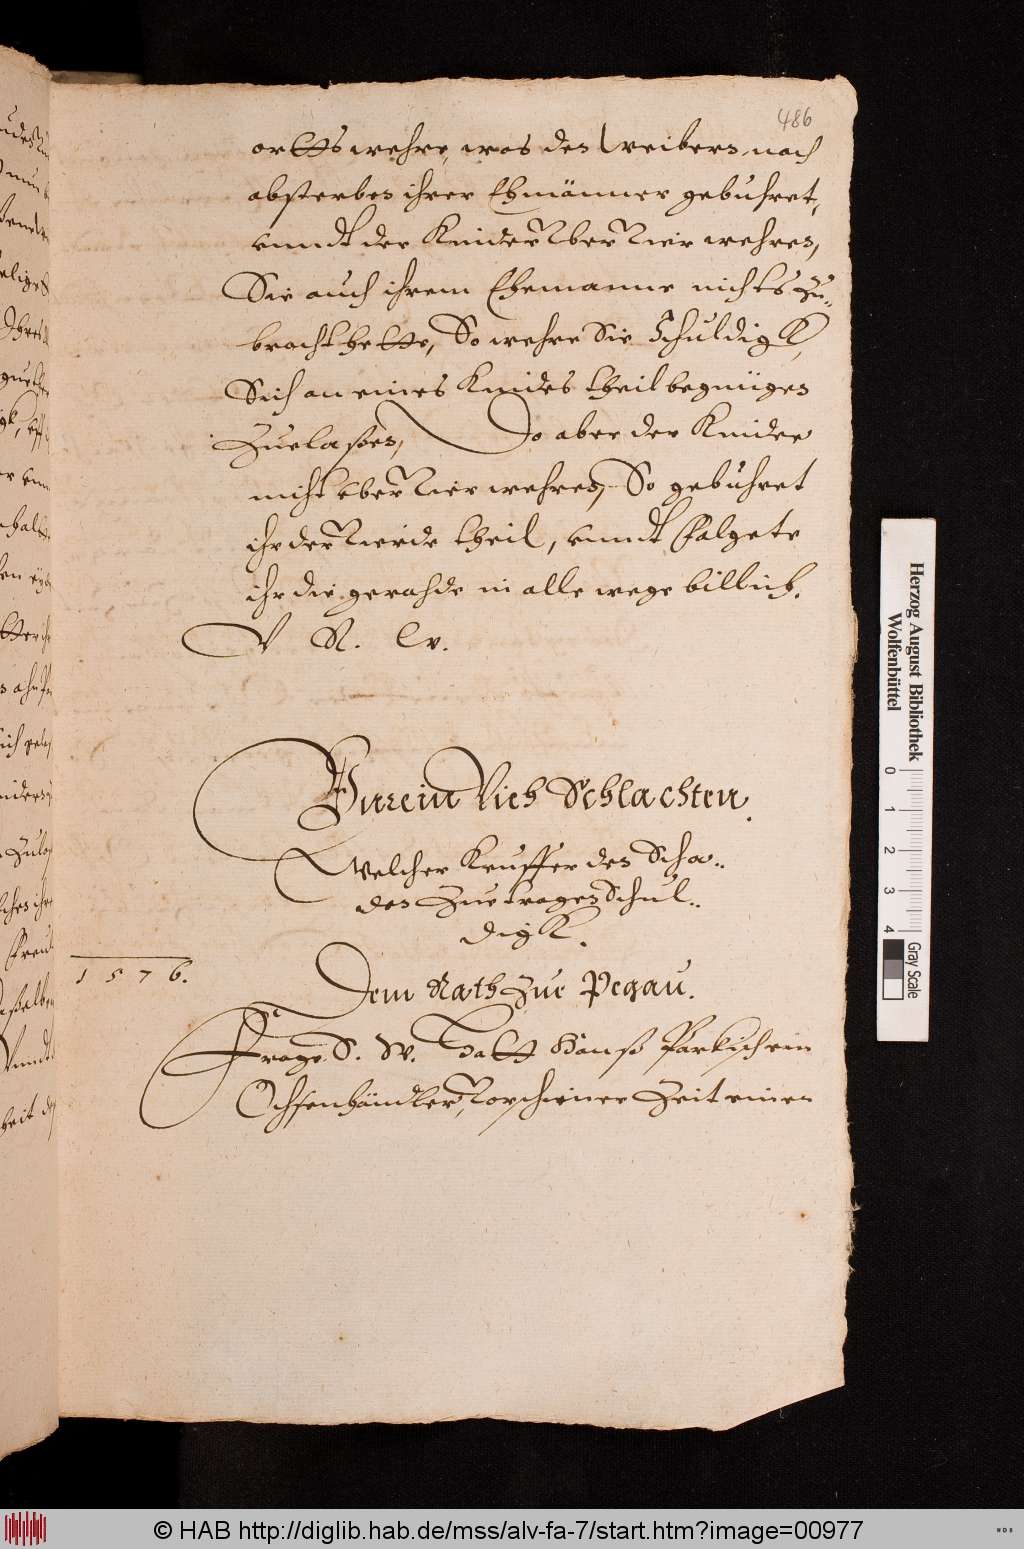 486
ortts wehre, was den Weibern nach
absterben ihrer Ehmänner gebuhret,
vnndt der Kinder vber vier wehren,
Sie auch ihrem Ehemanne nichts zu-
bracht hette, So wehre Sie Schuldigk,
Sich an eines Kindes theil begnügen
Zuelaßen, Do aber der Kinder
nicht vber vier wehren, So gebuhret
ihr der vierde theil, vnndt folgete
ihr die gerahde in alle wege billich.
V R. W.
Vnrein Vieh Schlachten.
Welcher Keuffer den Scha-
den Zuetragen Schul-
digk.
1576.
Dem Rath Zue Pegau.
Frage S. W. Hatt Hanß ein
Ochsenhändler, Vorschiener Zeit einen
Herzog August Bibliothek
Wolfenbüttel
0 1 2 3 4
Gray Scale
© HAB http://diglib.hab.de/mss/alv-fa-7/start.htm?image=00977